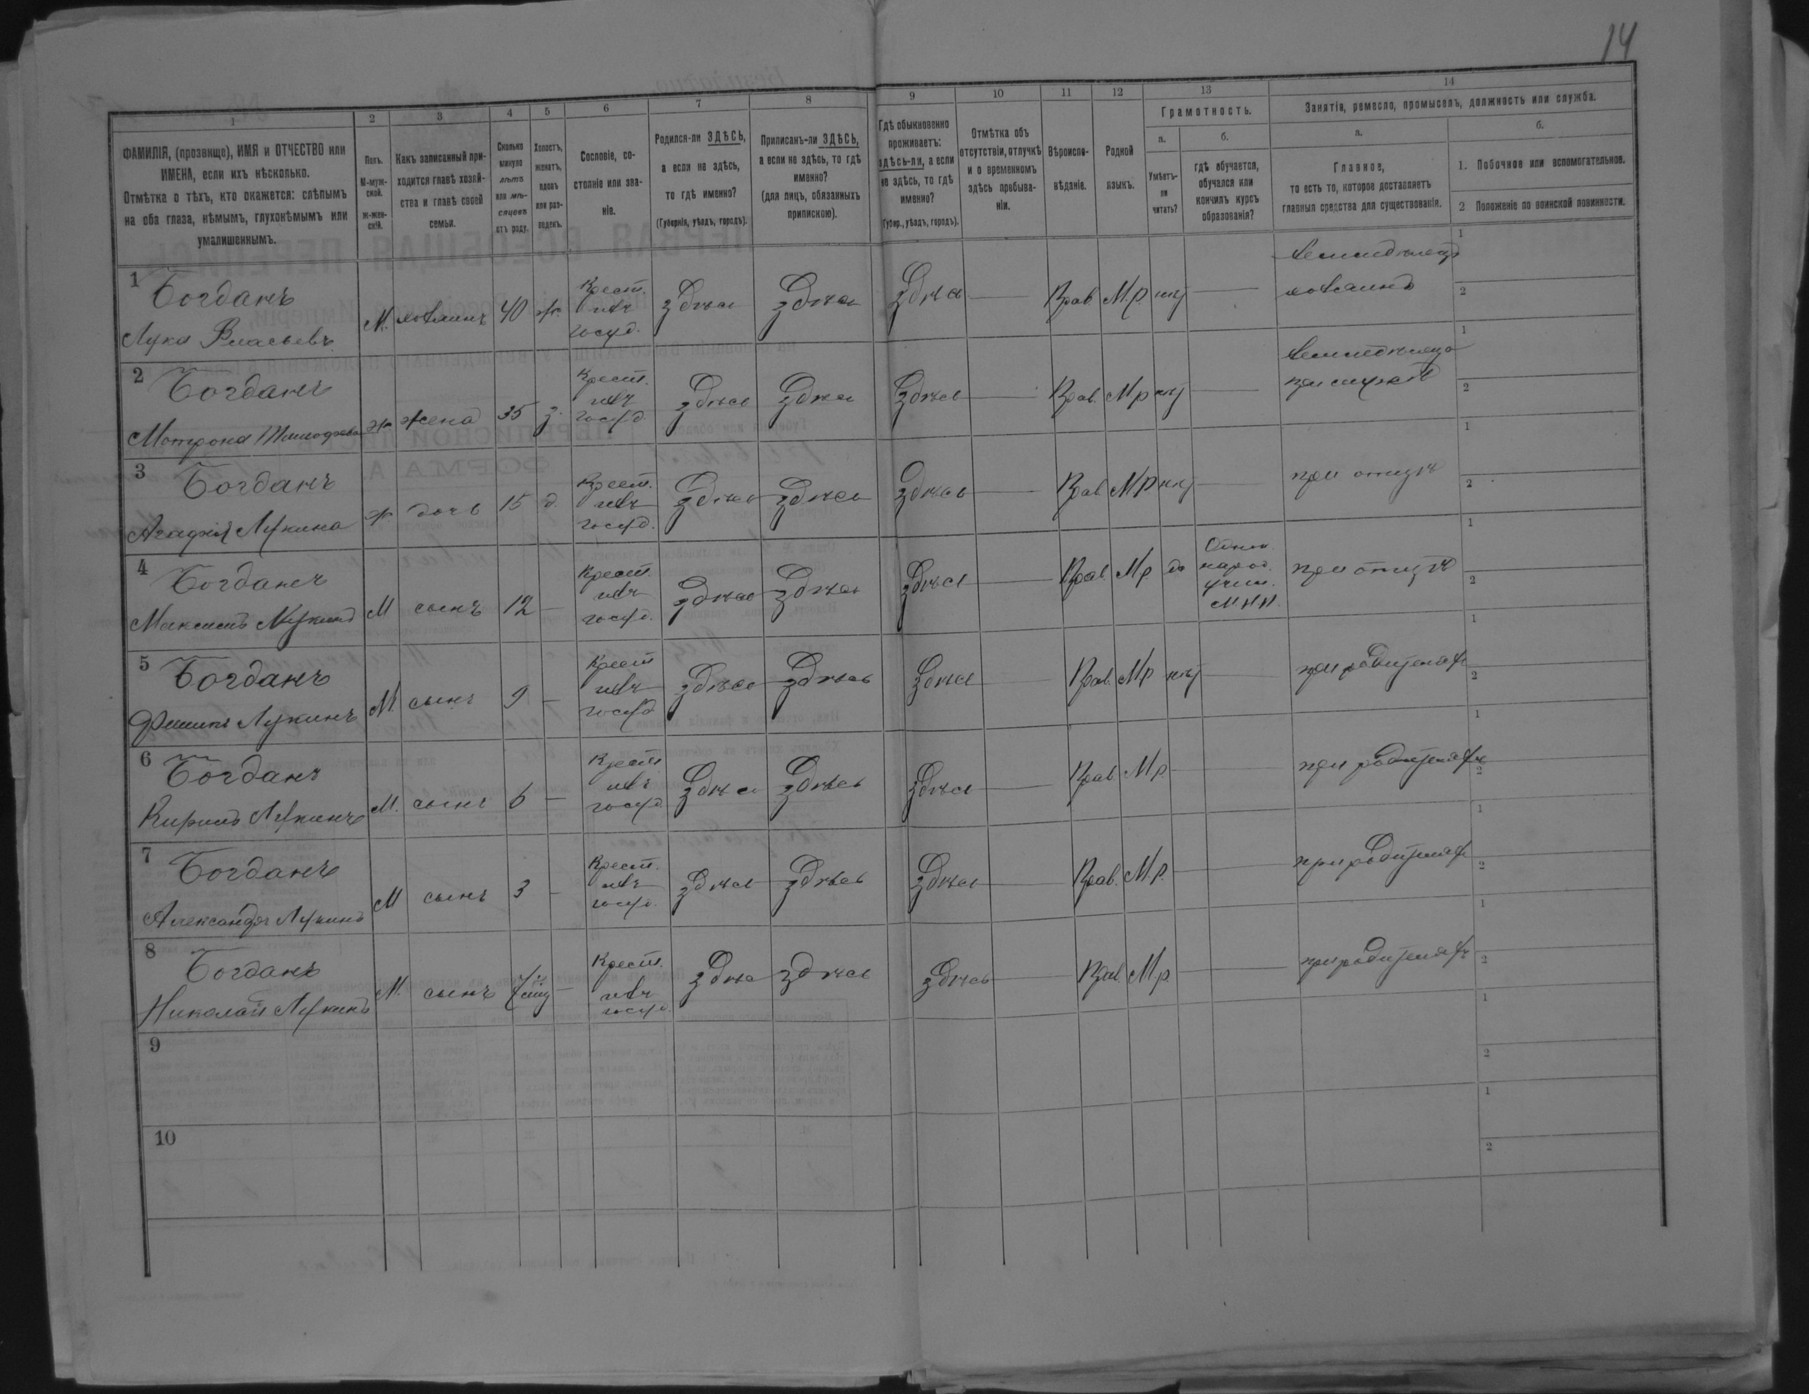 14
1 2 3 4 5 6 7 8 9 10 11 12 13 14
ФАМИЛІЯ, (прозвище), ИМЯ и ОТЧЕСТВО или
ИМЕНА, если ихъ нѣсколько.
Отмѣтка о тѣхъ, кто окажется: слѣпымъ
на оба глаза, нѣмымъ, глухонѣмымъ или
умалишеннымъ.
Полъ.
М-муж-
ской.
ж-жен-
скій.
Какъ записанный при-
ходится главѣ хозяй-
ства и главѣ своей
семьи.
Сколько
минуло
лѣтъ
или мѣ-
сяцевъ
отъ роду.
Холостъ,
женатъ,
вдовъ
или раз-
веденъ.
Сословіе, со-
стояніе или зва-
ніе.
Родился-ли ЗДѢСЬ,
а если не здѣсь,
то гдѣ именно?
(Губернія, уѣздъ, городъ).
Приписанъ-ли ЗДѢСЬ,
а если не здѣсь, то гдѣ
именно?
(для лицъ, обязанныхъ
припискою).
Гдѣ обыкновенно
проживаетъ:
здѣсь-ли, а если
не здѣсь, то гдѣ
именно?
(Губер., уѣздъ, городъ).
Отмѣтка объ
отсутствіи, отлучкѣ
и о временномъ
здѣсь пребыва-
ніи.
Вѣроиспо-
вѣданіе.
Родной
языкъ.
Грамотность.
а.
Умѣетъ-
ли
читать?
б.
гдѣ обучается,
обучался или
кончилъ курсъ
образованія?
Занятія, ремесло, промыселъ, должность или служба.
а.
Главное,
то есть то, которое доставляетъ
главныя средства для существованія.
б.
1. Побочное или вспомогательное.
2 Положеніе по воинской повинности.
1 Богданъ
Лука Власьевъ М. хозяинъ 40 ж. Крест. изъ госуд. здѣсь здѣсь здѣсь — Прав М р нѣт — хозяинъ 1 2
2 Богданъ
Мотрона ж жена 35 з. Крест. изъ госуд здѣсь здѣсь здѣсь — Прав. М р нѣт — 1 2
3 Богданъ
Агафія Лукина ж дочь 15 д Крест. изъ госуд. здѣсь здѣсь здѣсь — Прав М р нѣт — при отцѣ 1 2
4 Богданъ
Максимъ Лукинъ М сынъ 12 — Крест. изъ госуд. здѣсь здѣсь здѣсь — Прав М р да народ. учил. М Н П. при отцѣ 1 2
5 Богданъ
Лукинъ М сынъ 9 — Крест изъ госуд здѣсь здѣсь здѣсь — Прав. М р нѣт — при родителяхъ 1 2
6 Богданъ
Кирилъ Лукинъ М. сынъ 6 — Крест изъ госуд здѣсь здѣсь здѣсь — Прав М р — — при родителяхъ 1 2
7 Богданъ
Александръ Лукинъ М сынъ 3 — Крест. изъ госуд. здѣсь здѣсь здѣсь — Прав. М.р. — — при родителяхъ 1 2
8 Богданъ
Николай Лукинъ М. сынъ — Крест. изъ госуд. здѣсь здѣсь здѣсь — Прав М р. — — при родителяхъ 1 2
9 1 2
10 1 2